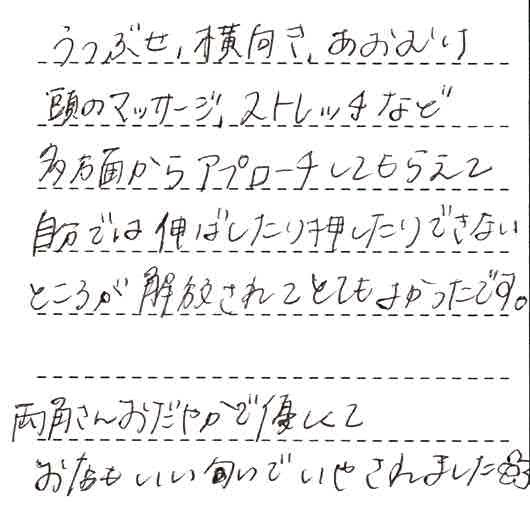 うつぶせ、横向き、あおむけ
頭のマッサージ、ストレッチなど
多方面からアプローチしてもらえて
自分では伸ばしたり押したりできない
ところが解放されてとてもよかったです。
両角さんおだやかで優しくて
お店もいい匂いでいやされました